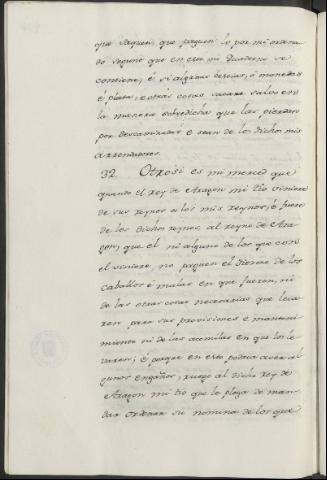 que saquen, que paguen lo por mi ordena
do segunt que en este mi Quaderno se
contiene; é si algunas doblas, o monedas
é plata, e otras cosas sacare salvo en
la manera sobredicha que las pierdan
por descaminadas e sean de los dichos mis
arrendadores.
32. Otrosi es mi merced que
quando el rey de Aragon mi tio viniere
de sus reynos a los mis reynos, ó fuere
de los dichos reynos, al reyno de Ara
gon, que el ni alguno de los que con
el viniere, no paguen el diezmo de los
caballos é mulas en que fueren, ni
de las otras cosas necesarias que leva
ren para sus provisiones e manteni
miento ni de las acemilas en que los le
varen; é porque en esto podria aver al
gunos engaños, ruego al dicho rey de
Aragon mi tio que le plega de man
dar ordenar su nomina de los que